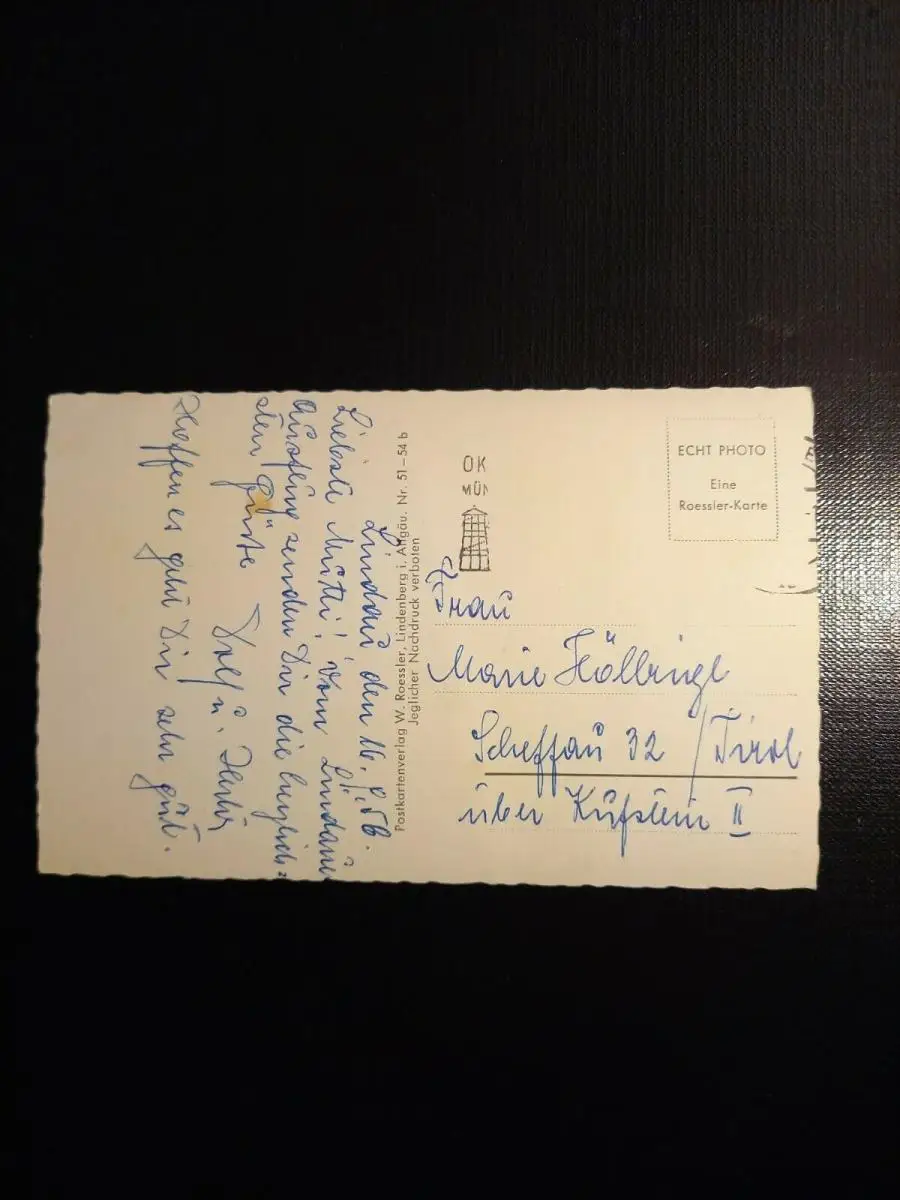 Lindau, den 16.
Liebste Mutti! Vom Lindau
senden Dir die herzlich-
sten Grüße
u.
Hoffen es geht Dir sehr gut.
Postkartenverlag W. Roessler, Lindenberg i. Allgäu. Nr. 51–54 b
Jeglicher Nachdruck verboten
OK
MÜN
ECHT PHOTO
Eine
Roessler-Karte
Frau
Marie Höllrigl
Scheffau 32 / Tirol
über Kufstein II